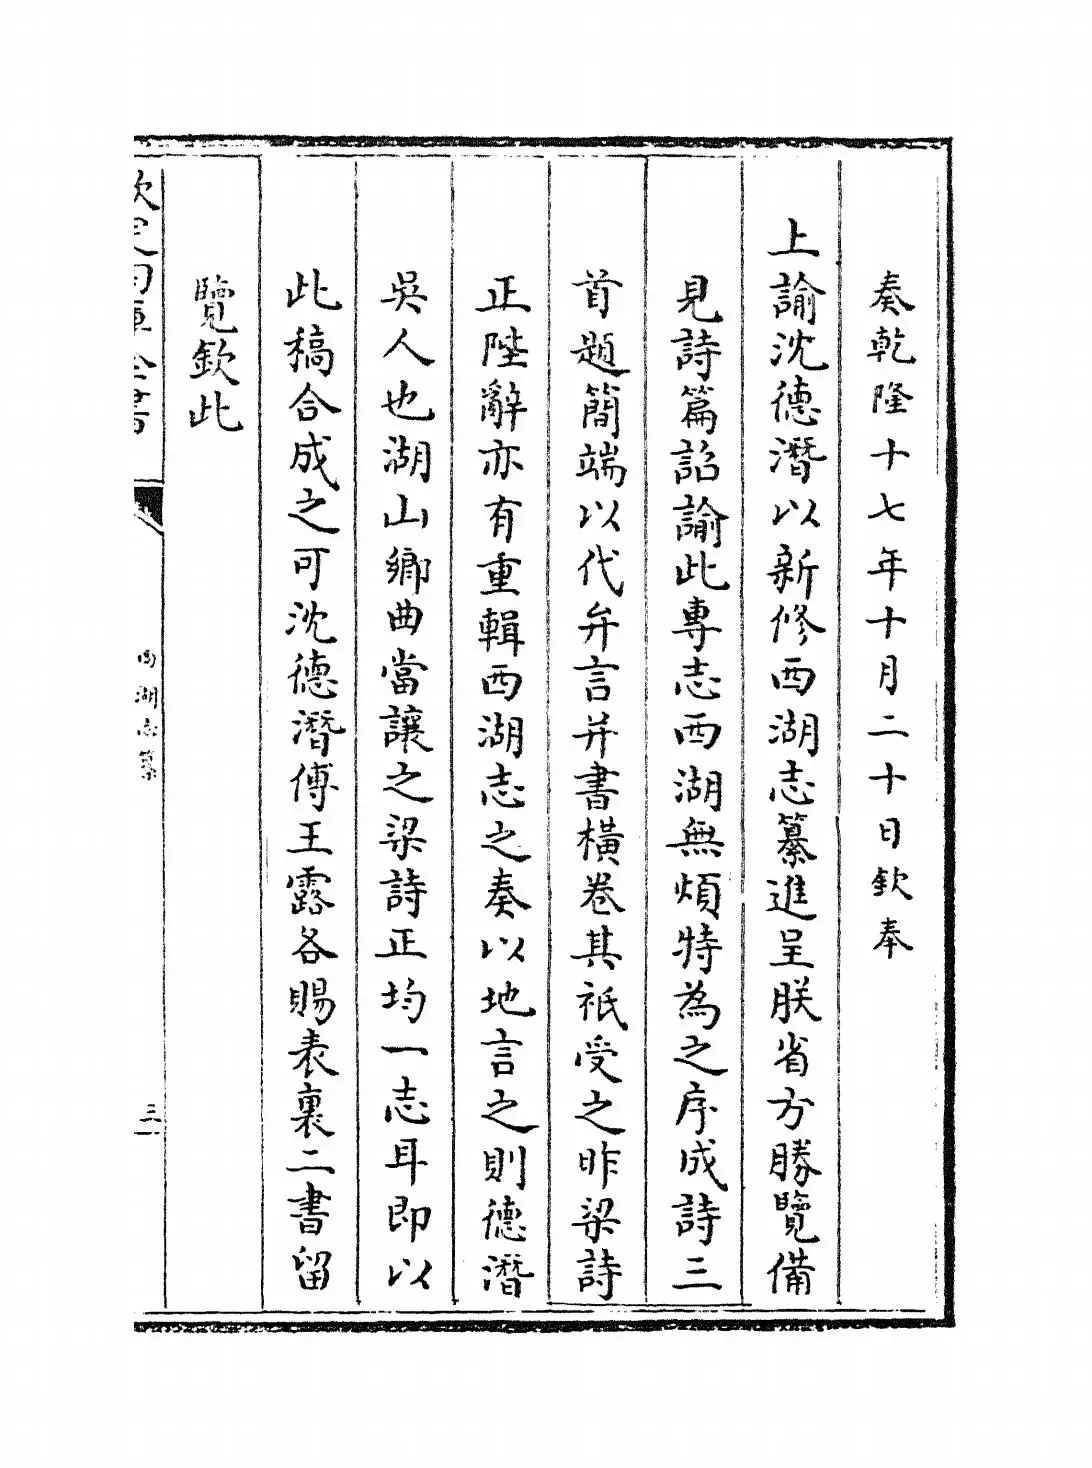 奏乾隆十七年十月二十日欽奉
上諭沈德潛以新修西湖志纂進呈朕省方勝覽備
見詩篇詔諭此專志西湖無煩特為之序成詩三
首題簡端以代弁言并書橫卷其祇受之昨梁詩
正陛辭亦有重輯西湖志之奏以地言之則德潛
吳人也湖山鄉曲當讓之梁詩正均一志耳即以
此稿合成之可沈德潛傅王露各賜表裏二書留
覽欽此
欽定四庫全書
西湖志纂
三